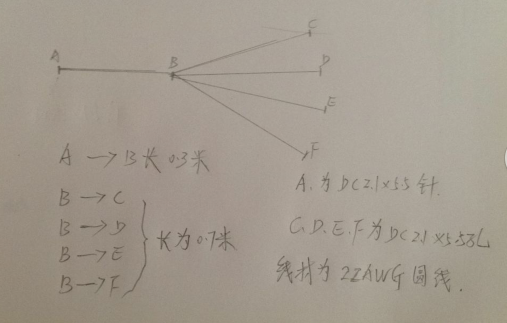 C
A
B
D
E
F
A → B 长 0.3米
B → C
B → D
B → E
B → F
长为 0.7米
A. 为 DC2.1×5.5 针.
C. D. E. F 为 DC2.1×5.5孔
线材为 22AWG 圆线.